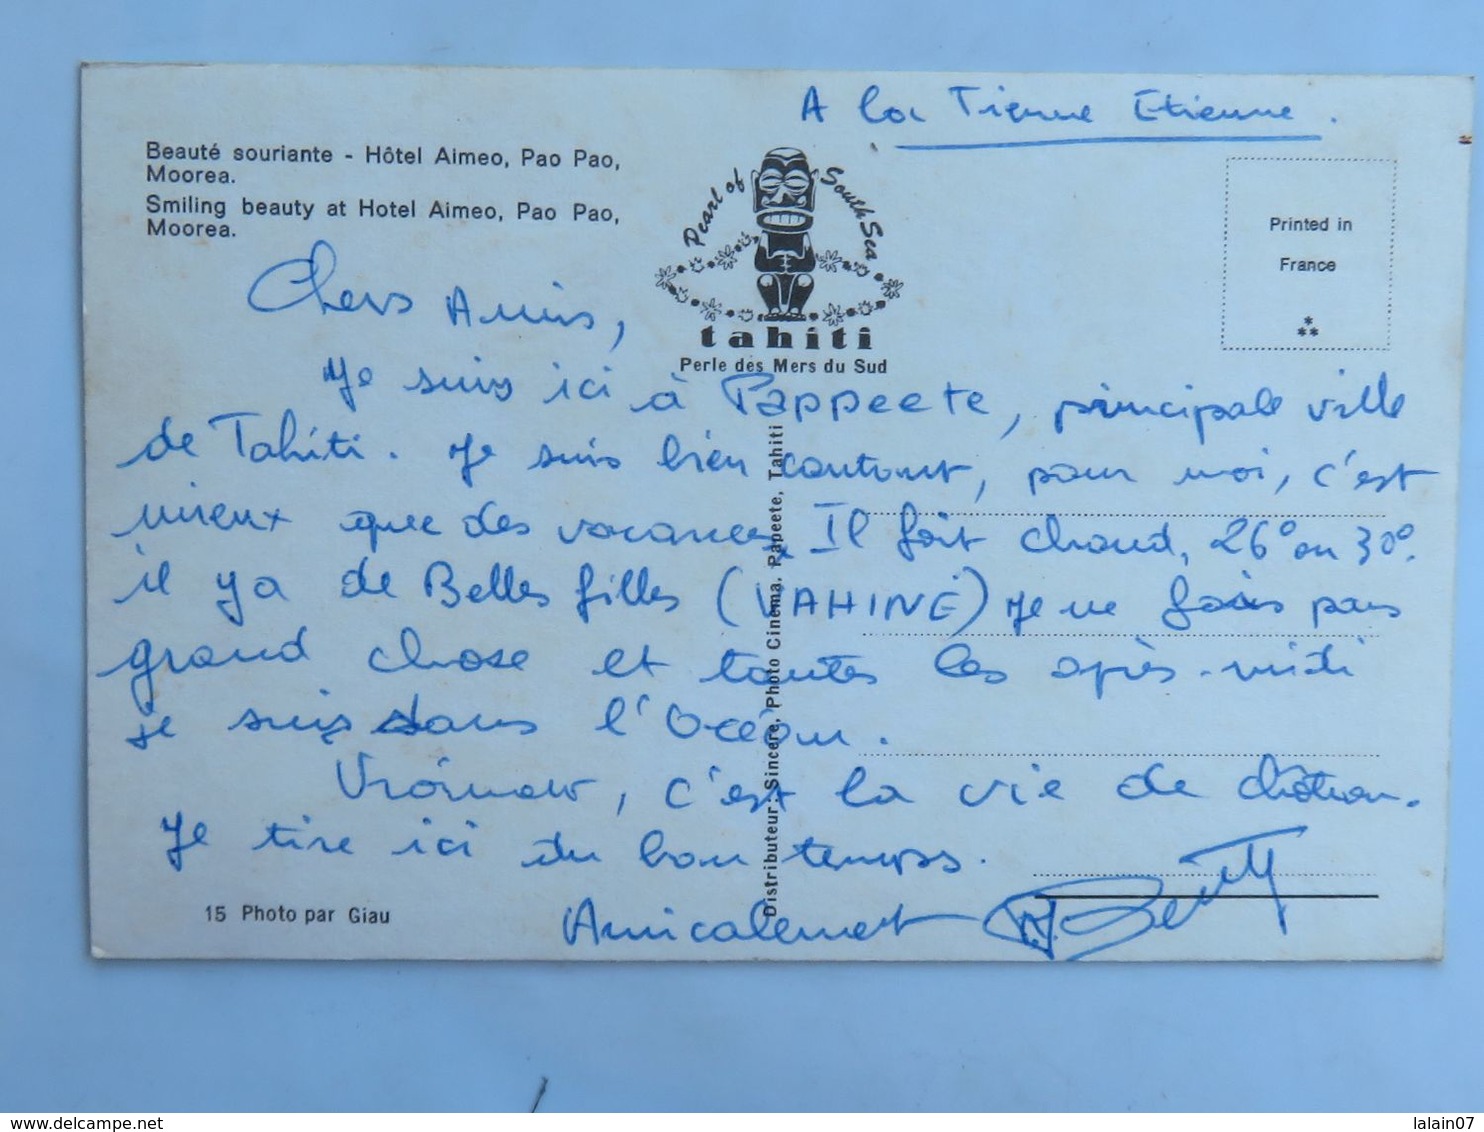 A la Tienne Etienne.
Beauté souriante - Hôtel Aimeo, Pao Pao,
Moorea.
Smiling beauty at Hotel Aimeo, Pao Pao,
Moorea.
Pearl of South Sea
tahiti
Perle des Mers du Sud
Printed in
France
Chers Amis,
Je suis ici à Pappeete, principale ville
de Tahiti. Je suis bien contont, pour moi, c'est
mieux que des vacances, Il fait chaud, 26° ou 30°.
il ya de Belles filles (VAHINÉ) Je ne fais pas
grand chose et toutes les après-midi
je suis dans l'Océan.
Vraiment, c'est la vie de château.
Je tire ici du bon temps.
Amicalement
15 Photo par Giau
Distributeur : Sincere, Photo Cinema, Papeete, Tahiti
delcampe.net
lalain07